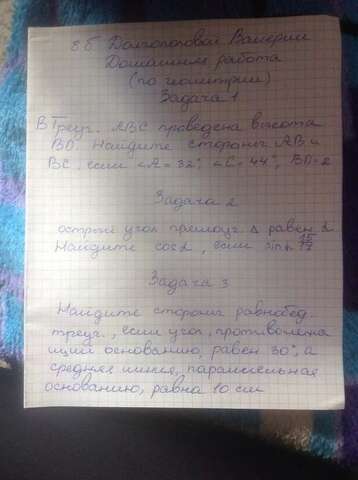 8б Долгополовой Валерии
Домашняя работа
(по геометрии)
Задача 1
В Треуг. ABC проведена высота
BD. Найдите стороны AB и
BC, если ∠A=32°, ∠C=44°, BD=2
Задача 2
острый угол прямоуг. Δ равен α
Найдите cos α, если sin α 15/17
Задача 3
Найдите стороны равнобед.
треуг., если угол, противолежа
щий основанию, равен 30°, а
средняя линия, параллельная
основанию, равна 10 см